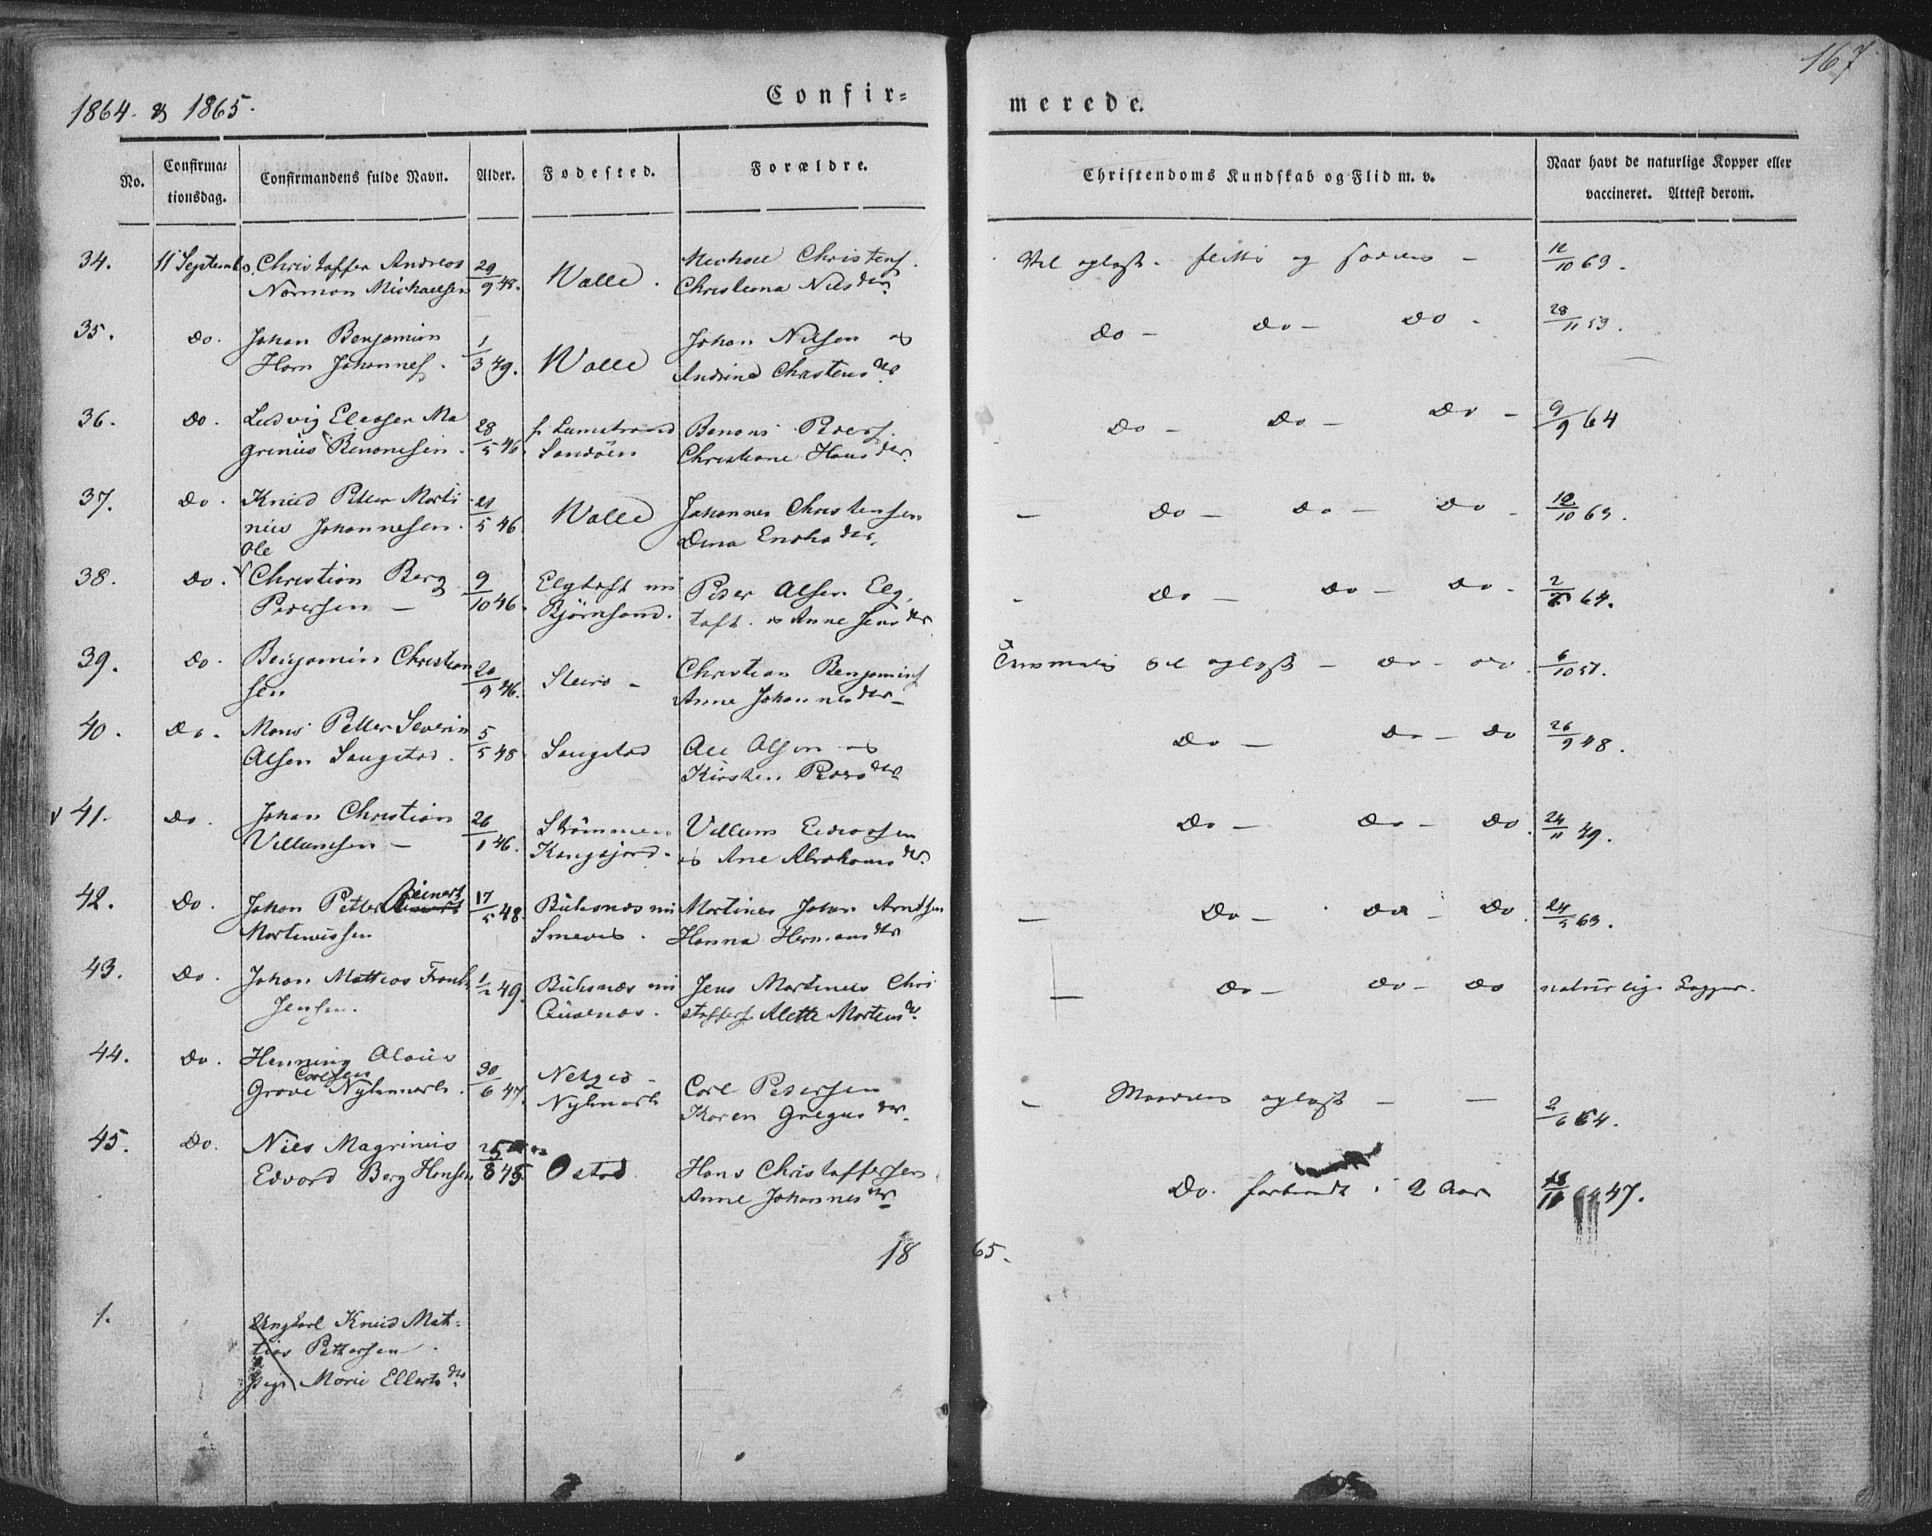 167
1864. & 1865.
Confir=
merede.
No.
Confirma=
tionsdag.
Confirmandens fulde Navn.
Alder.
Fødested.
Forældre.
Christendoms Kundskab og Flid m. v.
Naar havt de naturlige Kopper eller
vaccineret. Attest derom.
34. 11 September Christoffer Andreas
Norman Michaelsen 29/9 48. Walle.
Michael Christens.
Christiana Nilsdtr
Vel oplyst. flittig og sædelig - 12/10 63.
35. Do. Johan Benjamin
Horn Johannes. 1/3 49. Walle
Johan Nilsen &
Andrine Christensdtr
Do - Do - Do - 28/11 53.
36. Do. Ludvig Eleaser Ma
grinius Benonisen. 28/5 46.
Sandøen
Benoni Peders.
Christiane Hansdtr.
Do - Do - Do - 9/9 64
37. Do. Knud Petter Marti
nus Johannesen. 21/5 46 Walle
Johannes Christensen
Dina Enoksdtr.
- Do - Do - Do - 12/10 63.
38. Do. Ole
Christian Berg
Pedersen - 9/10 46.
Elgtoft i
Bjørnsand.
Peder Alsen Elg
toft. & Anne Jensdtr
- Do - Do - Do - 2/6 64.
39. Do. Benjamin Christian
sen 20/9 46. Steiro -
Christian Benjamins
Anne Johannesdtr -
vel oplyst - do - do. 6/10 51.
40. Do. Mons Petter Severin
Alsen Saugstad. 5/5 48 Saugstad
Ale Alsen &
Kirsten Pedersdtr
Do - Do - Do 26/9 48.
41. Do. Johan Christian
Villumsen - 26/1 46.
Strømmen
Kongsjord.
Villum Edvardsen
& Ane Abrahamsdtr.
Do - Do - Do. 24/11 49.
42. Do. Johan Petter Reinert
Martinussen 17/5 48.
Buksnæs i
Martines Johan Arntsen
Hanna Hermansdtr
- Do - Do - Do. 24/5 63.
43. Do. Johan Mathias Frank
Jensen. 1/2 49.
Buksnæs i
Jens Martinus Chri
stoffers Alette Mortensdtr.
- Do - Do - Do naturlige Kopper.
44. Do. Henning Olaus
Carlsen
Grove Nykmark. 30/6 47.
Nykmark
Carl Pedersen
Karen Gregusdtr.
- Maadelig oplyst - - 2/6 64.
45. Do. Niels Magrinus
Edvard Berg Hansen 25/8 45. Ostad
Hans Christoffersen
Anne Johannesdtr
Do. forberedt i 2 Aar 18/11 47.
1865.
1. Ungkarl Knud Mat=
tias Pettersen
&
Pige Marie Ellertsdtr.